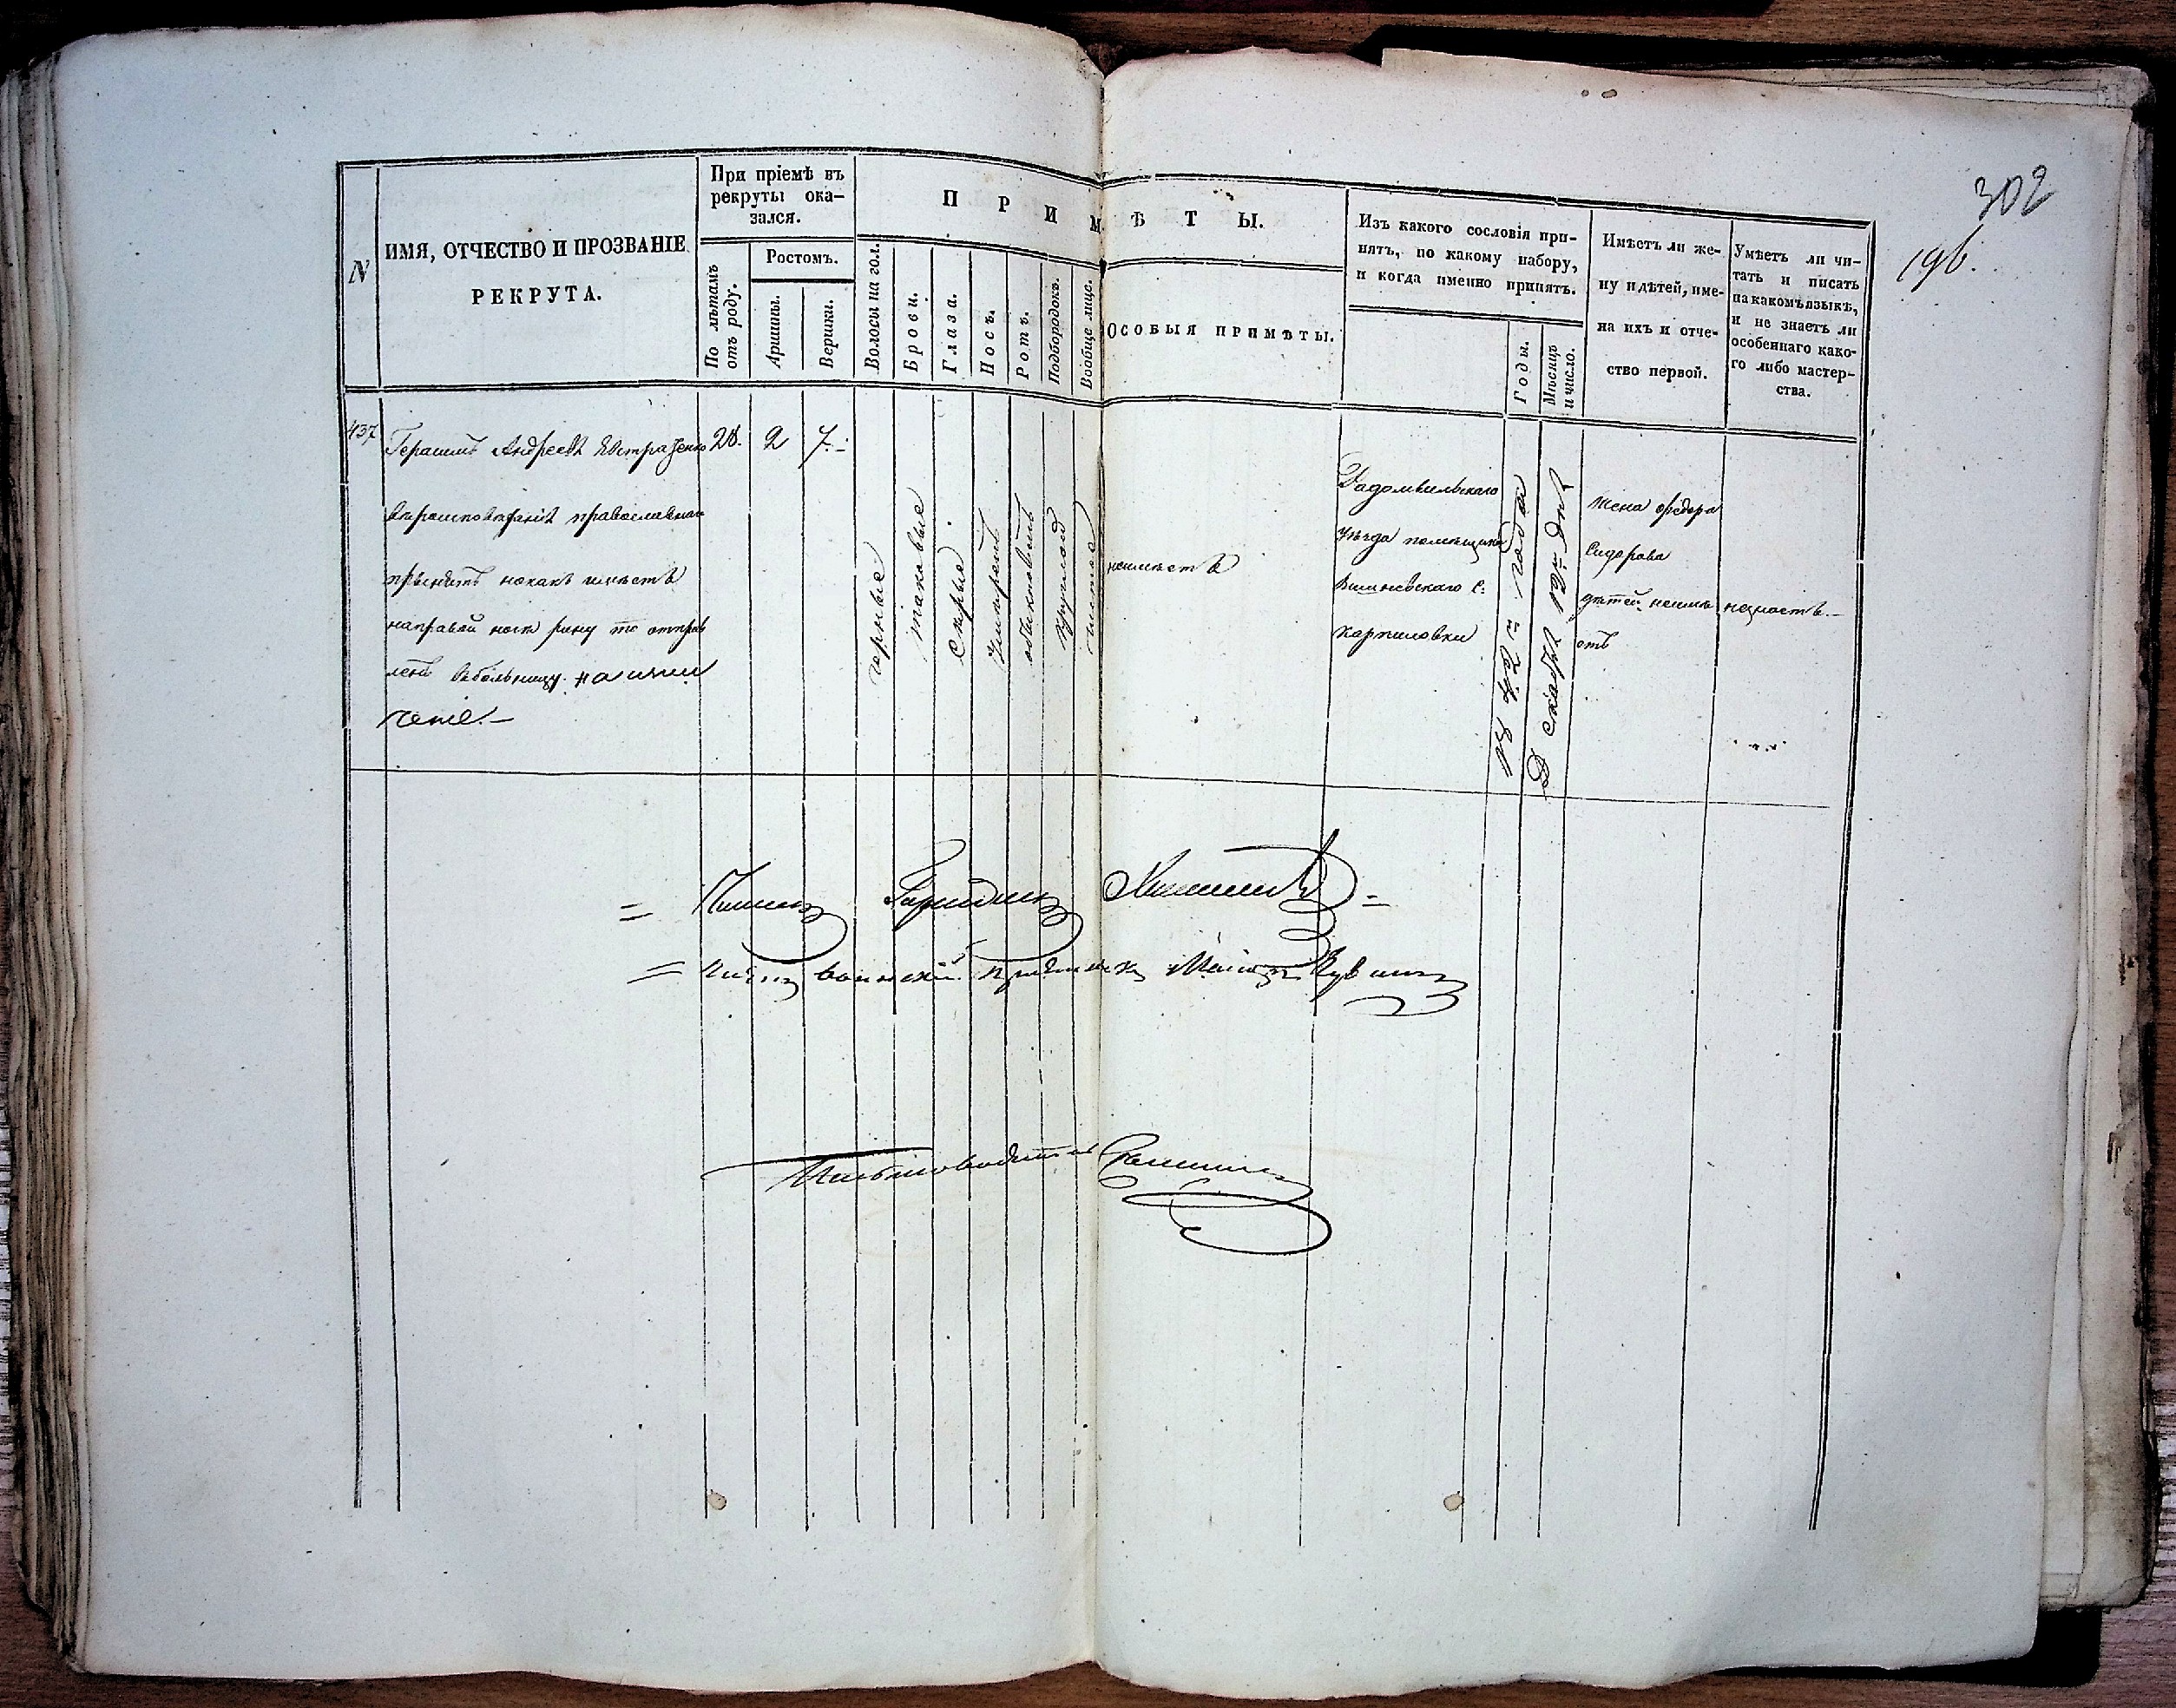 302
196.
N
ИМЯ, ОТЧЕСТВО И ПРОЗВАНІЕ
РЕКРУТА.
При пріемѣ въ
рекруты ока-
зался.
По лѣтамъ
отъ роду.
Ростомъ.
Аршины.
Вершки.
ПРИМѢТЫ.
Волосы на гол.
Брови.
Глаза.
Носъ.
Ротъ.
Подбородокъ.
Вообще лице.
ОСОБЫЯ ПРИМѢТЫ.
Изъ какого сословія при-
нятъ, по какому набору,
и когда именно принятъ.
Годы.
Мѣсяцъ
и число.
Имѣетъ ли же-
ну и дѣтей, име-
на ихъ и отче-
ство первой.
Умѣетъ ли чи-
тать и писать
на какомъ языкѣ,
и не знаетъ ли
особеннаго како-
го либо мастер-
ства.
437
Герасимъ Андреевъ
православнаго
нокакъ имѣетъ
направой ногѣ рану то отправ
ленъ вбольницу
28.
2
7.
черные
таковые
серые
умерен.
обыкновен.
круглой
чистое
неимѣетъ
уѣзда помещика
Вишневскаго с.
Карпиловки
1842 года
Декабря 12 дня
Жена Федора
Сидорова
дѣтей неиме
етъ
незнаетъ.
воинскій пріемщикъ Маіоръ
Письмоводитель